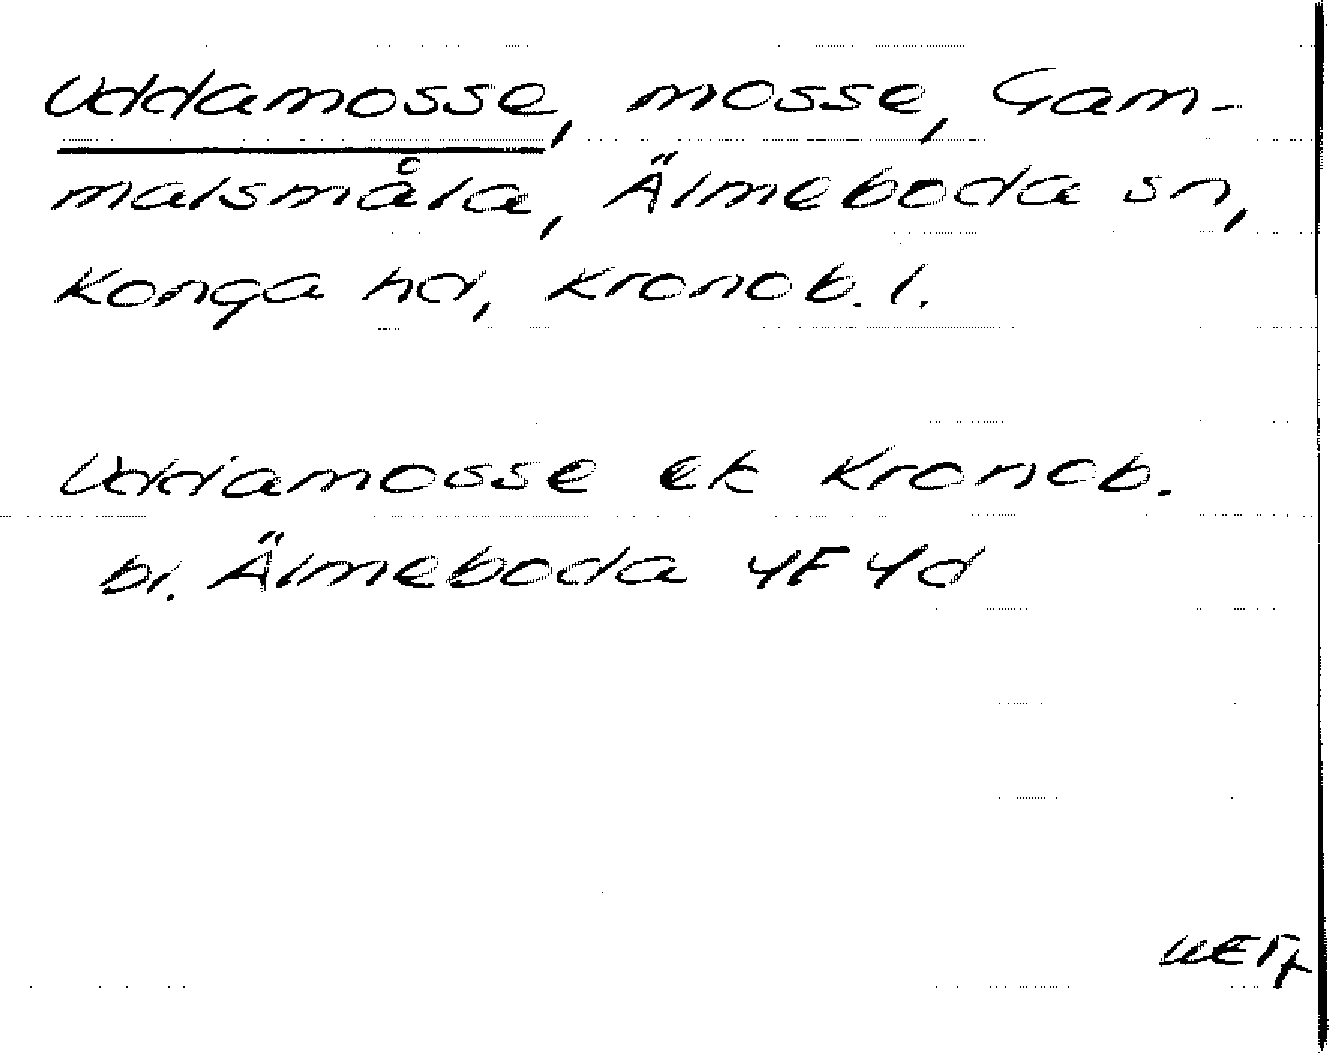 Uddamosse, mosse, Gam-
malsmåla, Älmeboda sn,
Konga hd, Kronob. l.
Uddamosse ek Kronob.
bl. Älmeboda 4F 4d